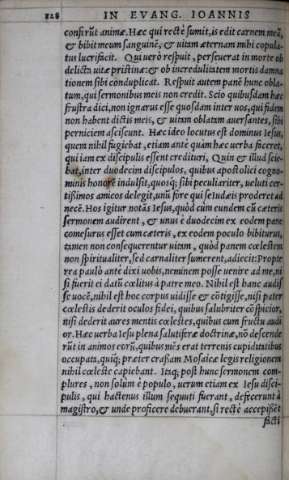 128 IN EVANG. IOANNIS
consistũt animæ. Hæc qui rectè sumit, is edit carnem meã,
& bibit meum sanguinẽ, & uitam æternam mihi copula-
tus lucrificit. Qui uerò respuit, perseuerat in morte ob
delicta uitæ pristinæ: & ob incredulitatem mortis damna
tionem sibi conduplicat. Respuit autem panẽ hunc obla-
tum, qui sermonibus meis non credit. Scio quibusdam hæc
frustra dici, non ignarus esse quosdam inter uos, qui fidem
non habent dictis meis, & uitam oblatam auersantes, sibi
perniciem asciscunt. Hæc ideo locutus est dominus Iesus,
quem nihil fugiebat, etiam ante quàm hæc uerba faceret,
qui iam ex discipulis essent credituri. Quin & illud scie-
bat, inter duodecim discipulos, quibus apostolici cogno-
minis honorẽ indulsit, quosq́; sibi peculiariter, ueluti cer-
tissimos amicos delegit, unũ fore qui se Iudæis proderet ad
necẽ. Hos igitur notãs Iesus, quòd cùm eundem cũ cæteris
sermonem audirent, & unus è duodecim ex eodem pane
comesurus esset cum cæteris, ex eodem poculo bibiturus,
tamen non consequerentur uitam, quòd panem cœlestem
non spiritualiter, sed carnaliter sumerent, adiecit: Propte
rea paulò antè dixi uobis, neminem posse uenire ad me, ni
si fuerit ei datũ cœlitus à patre meo. Nihil est hanc audis-
se uocẽ, nihil est hoc corpus uidisse & cõtigisse, nisi pater
cœlestis dederit oculos fidei, quibus salubriter cõspicior,
nisi dederit aures mentis cœlestes, quibus cum fructu audi
or. Hæc uerba Iesu plena salutiferæ doctrinæ, nõ descende
rũt in animos eorũ, quibus mẽs erat terrenis cupiditatibus
occupata, quiq́; præter crassam Mosaicæ legis religionem
nihil cœleste capiebant. Itaq; post hunc sermonem com-
plures, non solum è populo, uerum etiam ex Iesu disci-
pulis, qui hactenus illum sequuti fuerant, defecerunt à
magistro, & unde proficere debuerant, si rectè accepissẽt
facti